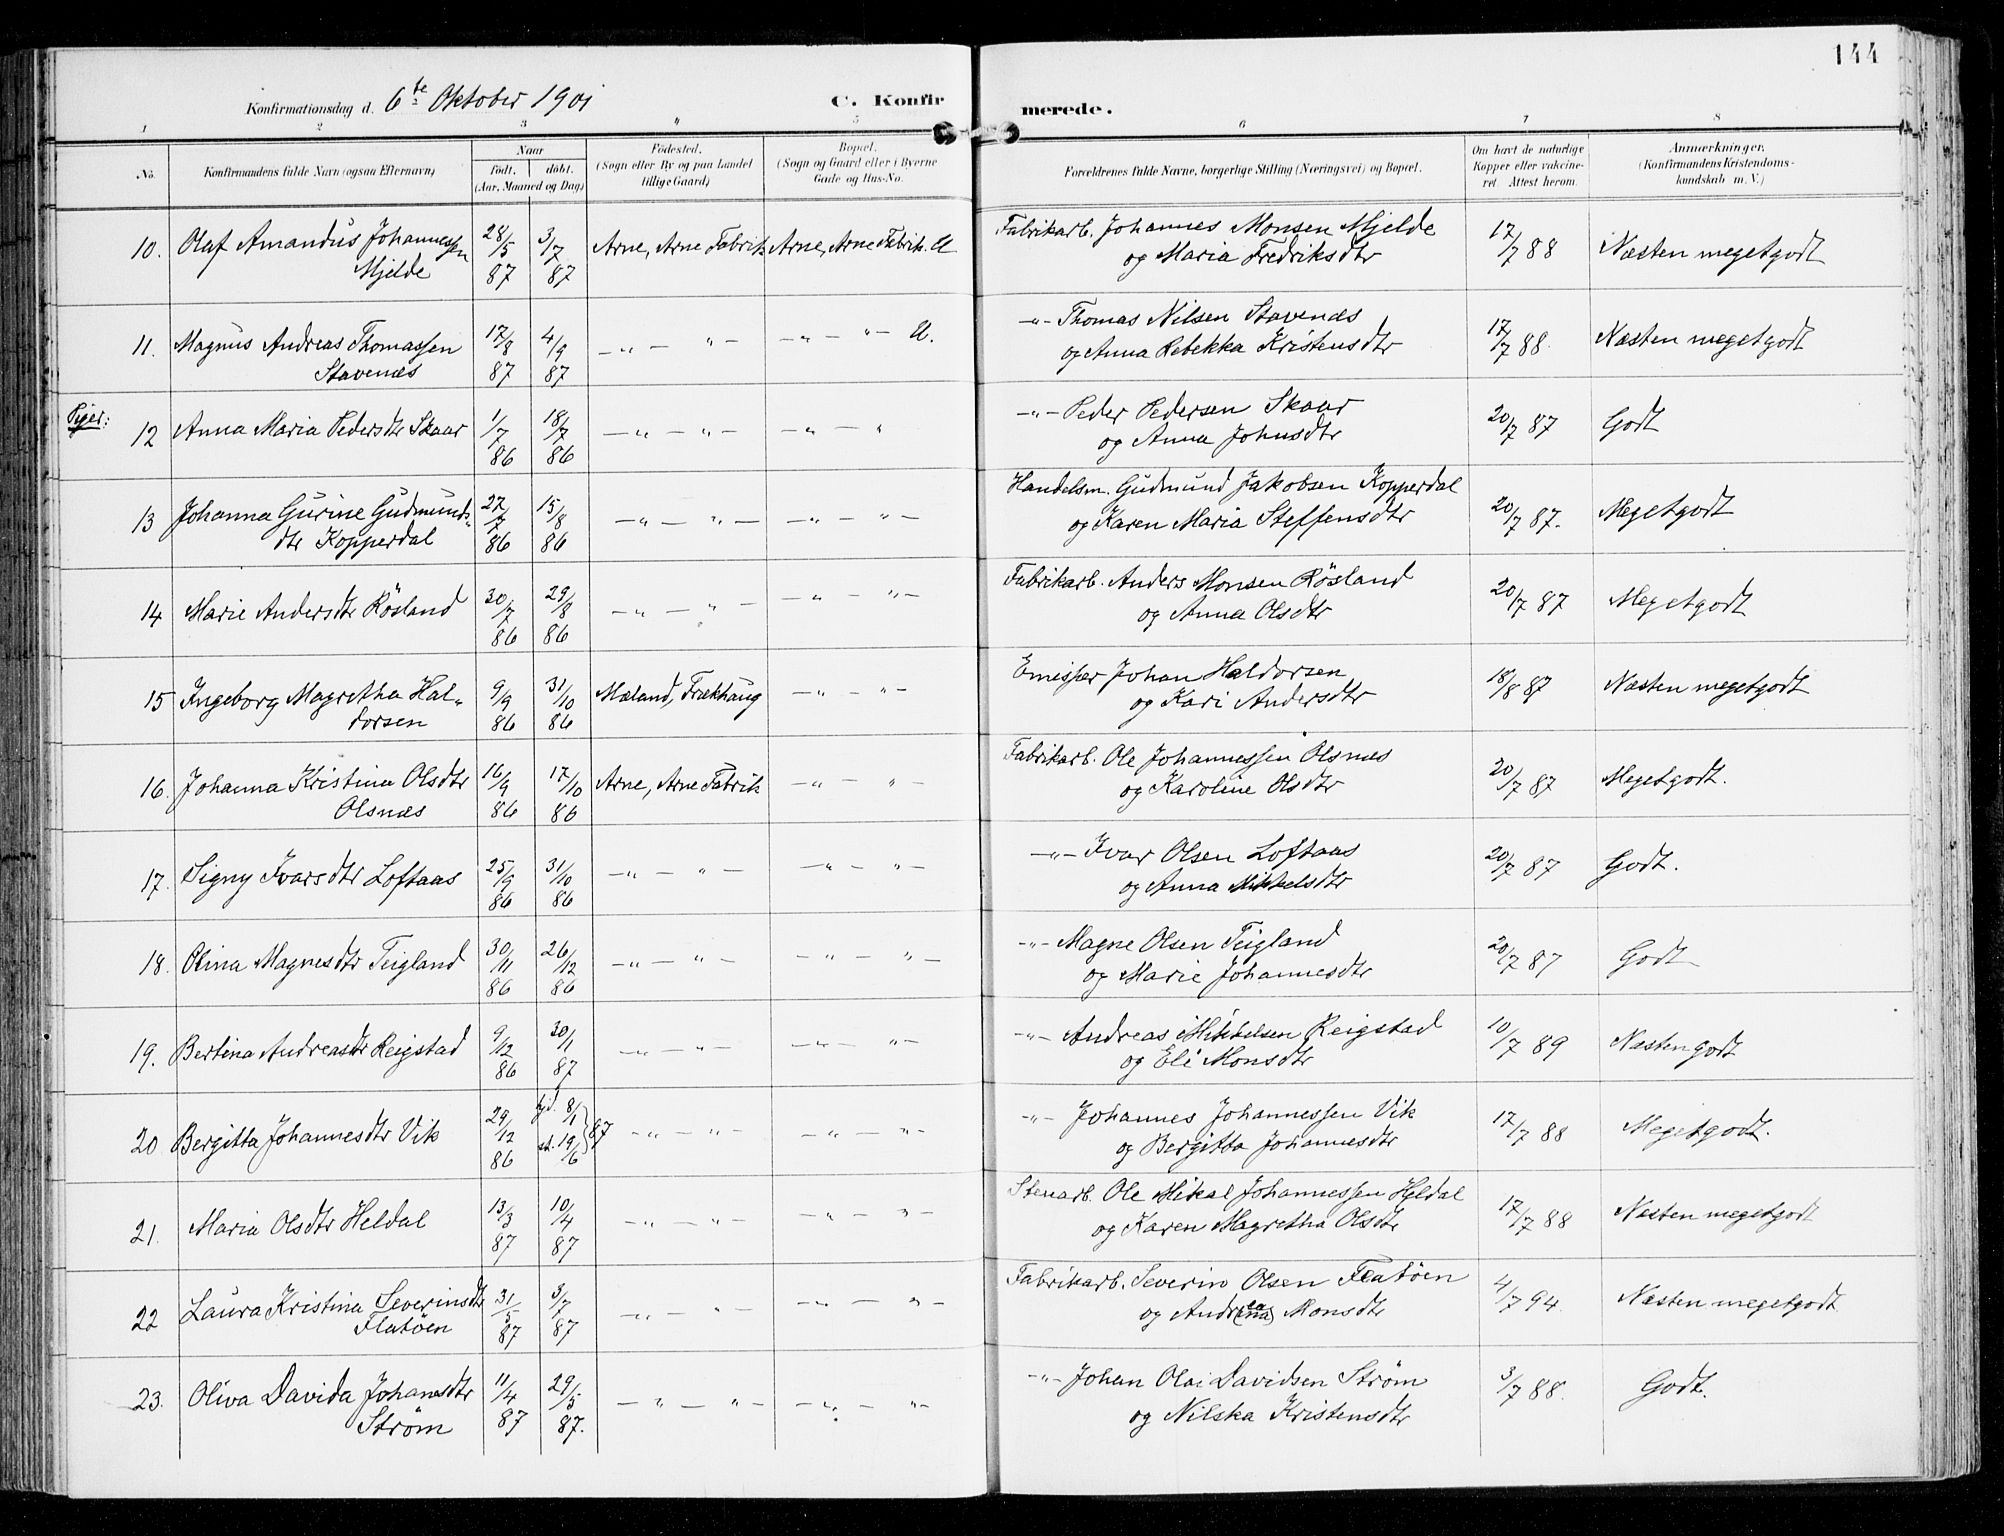 144
Konfirmationsdag d. 6te Oktober 1901 C. Konfirmerede.
1 2 3 4 5 6 7 8
No. Konfirmandens fulde Navn (ogsaa Efternavn) Naar født. døbt. (Aar, Maaned og Dag) Fødested. (Sogn eller By og paa Landet tillige Gaard) Bopæl. (Sogn og Gaard eller i Byerne Gade og Hus-No. Forældrenes fulde Navne, borgerlige Stilling (Næringsvei) og Bopæl. Om havt de naturlige Kopper eller vakcineret. Attest herom. Anmærkninger. (Konfirmandens Kristendomskundskab m. V.)
10. Olaf Amandus Johannessen 28/5 87 3/7 87 Arne, Arne Fabrik Arne, Arne Fabrik. U Fabrikarb. Johannes Monsen Mjelde 17/7 88 Næsten megetgodt
Mjelde og Maria Fredriksdtr
11. Magnus Andreas Thomassen 17/8 87 4/9 87 -"- "- -"- "- U. -"- Thomas Nilsen Stavenæs 17/7 88 Næsten megetgodt
Stavenæs og Anna Rebekka Kristensdtr
Piger:
12 Anna Maria Pedersdtr Skaar 1/7 86 18/7 86 -"- "- -"- " -"- Peder Pedersen Skaar 20/7 87 Godt
og Anna Johnsdtr
13 Johanna Gurine Gudmunds- 27/7 86 15/8 86 -"- "- -"- "- Handelsm. Gudmund Jakobsen Kopperdal 20/7 87. Megetgodt
dtr Kopperdal og Karen Maria Steffensdtr
14 Marie Andersdtr Røsland 30/7 86 29/8 86 -"- "- -"- "- Fabrikarb. Anders Monsen Røsland 20/7 87 Megetgodt
og Anna Olsdtr
15 Ingeborg Magretha Hal- 9/9 86 31/10 86 Mæland, Frækhaug -"- "- Emissær Johan Haldorsen 18/8 87 Næsten megetgodt
dorsen og Kari Andersdtr
16. Johanna Kristina Olsdtr 16/9 86 17/10 86 Arne, Arne Fabrik -"- "- Fabrikarb. Ole Johannessen Olsnæs 20/7 87 Megetgodt.
Olsnæs og Karoline Olsdtr
17. Signy Ivarsdtr Loftaas 25/9 86 31/10 86 -"- "- -"- "- -"- Ivar Olsen Loftaas 20/7 87 Godt.
og Anna Mikkelsdtr
18. Olina Magnesdtr Teigland 30/11 86 26/12 86 -"- "- -"- "- -"- Magne Olsen Teigland 20/7 87 Godt
og Marie Johannesdtr
19. Bertina Andreasdtr Reigstad 9/12 86 30/1 87 -"- "- -"- "- -"- Andreas Mikkelsen Reigstad 10/7 89 Næsten godt
og Eli Monsdtr
20 Bergitta Johannesdtr Vik 29/12 86 hjd. 8/1 st. 19/6 } 87 -"- "- -"- "- -"- Johannes Johannessen Vik 17/7 88 Megetgodt.
og Bergitta Johannesdtr
21. Maria Olsdtr Heldal 13/3 87 10/4 87 -"- "- -"- "- Stenarb. Ole Mikal Johannessen Heldal 17/7 88 Næsten megetgodt
og Karen Magretha Olsdtr
22 Laura Kristina Severinsdtr 31/5 87 3/7 87 -"- "- -"- "- Fabrikarb. Severin Olsen Flatøen 4/7 94. Næsten megetgodt
Flatøen og Andrea (ina) Monsdtr
23. Oliva Davida Johansdtr 11/4 87 29/5 87. -"- "- -"- "- -"- Johan Olai Davidsen Strøm 3/7 88. Godt.
Strøm og Nilska Kristensdtr